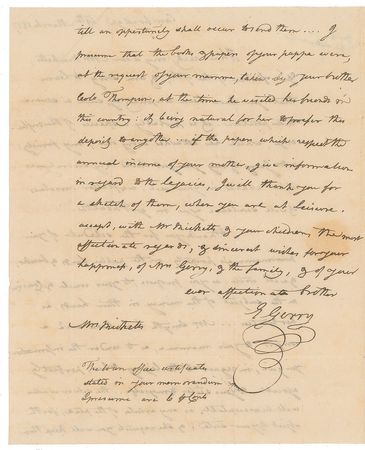 till an opportunity shall occur to send them .... I
presume that the books & papers of your pappa were,
at the request of your mamma, taken by your brother
Colo Thompson, at the time he visited his friends in
this country: it being natural for her to prefer this
deposit to another ... if the papers which respect the
annual income of your mother, give information
in regard to the legacies, I will thank you for
a sketch of them, when you are at leisure.
accept, with Mr Ricketts & your children, the most
affectionate regards, & sincerest wishes for your
happiness, of Mrs Gerry, & the family, & of your
ever affectionate brother
E Gerry
Mrs Ricketts
The loan office certificates
stated in your memorandum
I presume are 6 p Cents